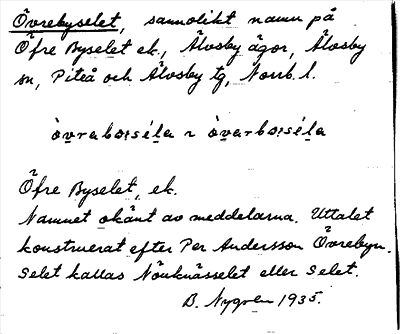 Övrebyselet, sannolikt namn på
Öfre Byselet ek., Älvsby ägor, Älvsby
sn, Piteå och Älvsby tg, Norrb. l.
Öfre Byselet, ek.
Namnet okänt av meddelarna. Uttalet
konstruerat efter Per Andersson Övrebyn.
Selet kallas Nöuknässelet eller Selet.
B. Nygren 1935.